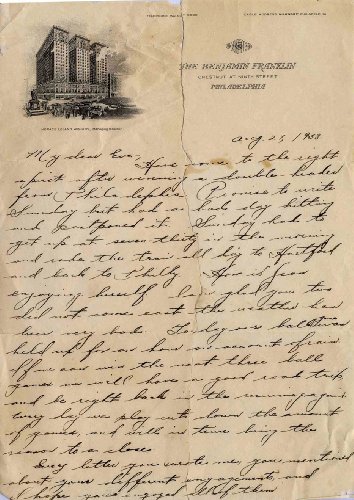 THE BENJAMIN FRANKLIN
CHESTNUT AT NINTH STREET
PHILADELPHIA
HORACE LELAND WIGGINS, MANAGING DIRECTOR
Aug 28, 1933
My dear Eve,
Have come to the right
spirit after winning a double header
from Philadelphia. Promise to write
Sunday but had a bad day hitting
and postponed it. Sunday had to
get up at seven thirty in the morning
and make the train all big to Hartford
and back to Philly. How is
enjoying herself. glad you two
did not come east the weather has
been very bad. Today's ball was
held up for an hour on account of rain.
If we can win the next three ball
games we will have a good road trip
and be right back in the running again.
Every day we play cuts down the amount
of games, and will in time bring the
season to a close.
Every letter you wrote me, you mentioned
about your different engagements, and
I hope you enjoyed